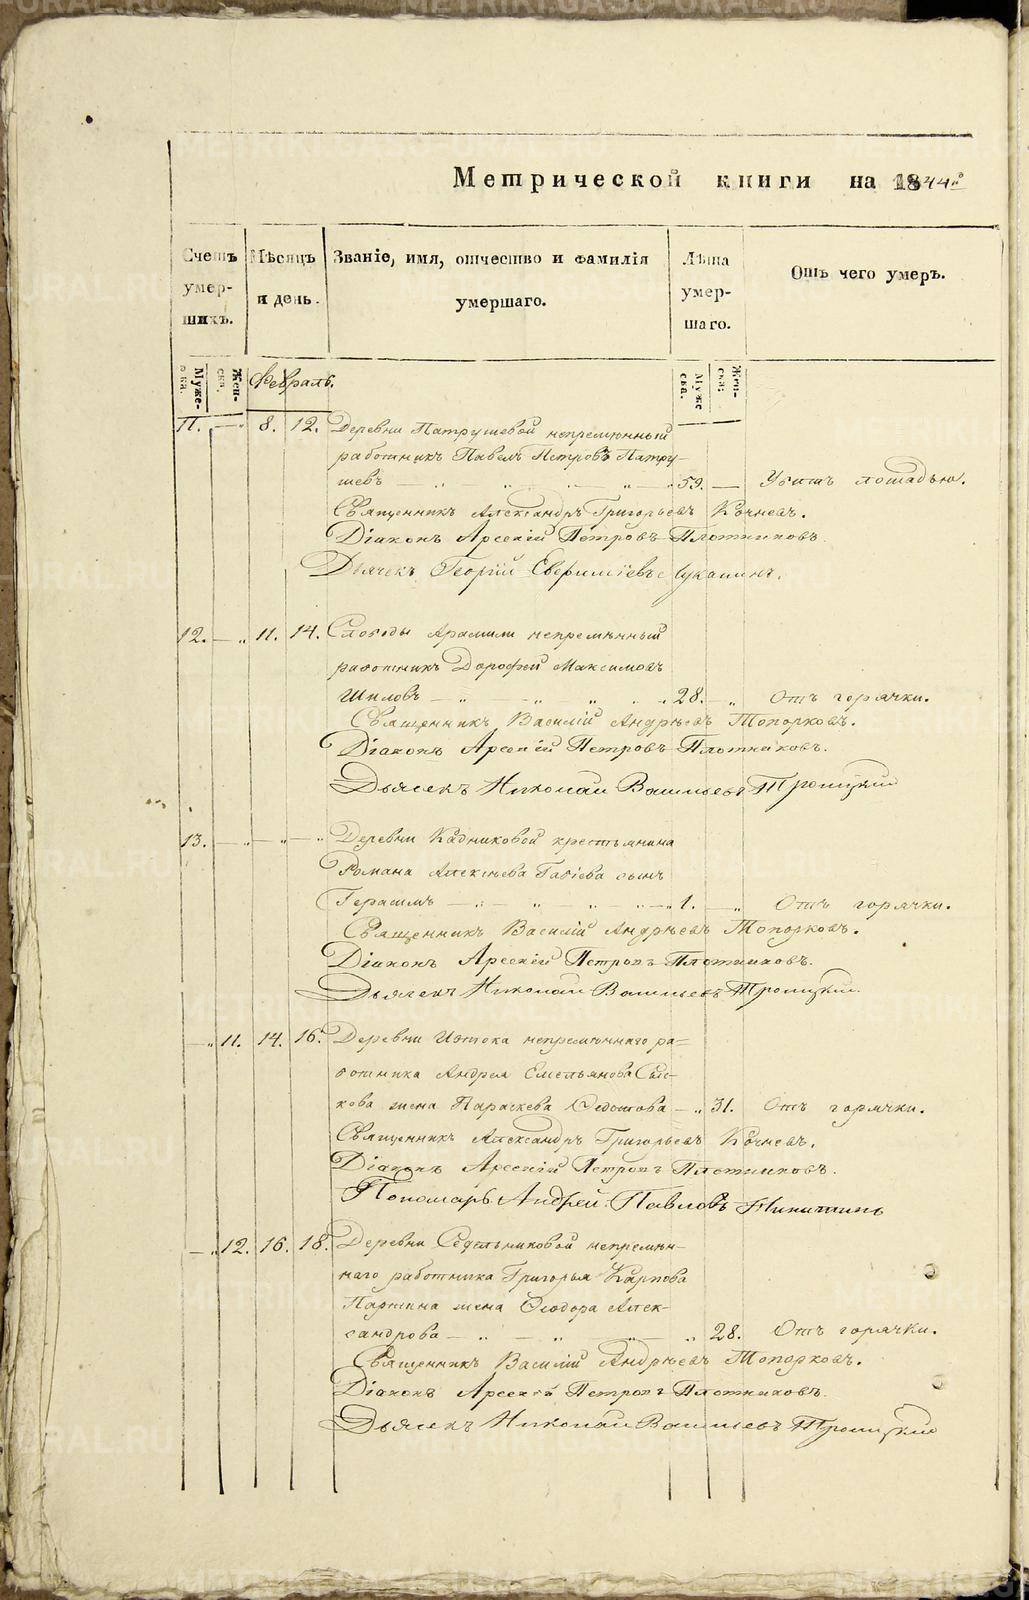 Метрической книги на 1844й
Счетъ умер- шихъ.
Мѣсяцъ и день.
Званіе, имя, отчество и фамилія умершаго.
Лѣта умер- шаго.
Отъ чего умеръ.
Муже- ска. Жен- ска. Февраль. Муже ска. Жен- ска:
11. — 8. 12. Деревни Патрушевой непремѣнный
работникъ Павелъ Петровъ Патру-
шевъ — 59. — Убитъ лошадью.
Священникъ Александръ Григорьевъ Кочневъ.
Діаконъ Арсеній Петровъ Плотниковъ.
Дьячекъ Георгій
12. — 11. 14. Слободы Арамили непремѣнный
работникъ Дорофей Максимовъ
Шиловъ — 28. — Отъ горячки.
Священникъ Василій Андрѣевъ Топорковъ.
Діаконъ Арсеній Петровъ Плотниковъ.
Дьячекъ Николай Васильевъ Троицкій
13. — Деревни Кадниковой крестьянина
Романа Алексѣева сынъ
Герасимъ — 1. — Отъ горячки.
Священникъ Василій Андрѣевъ Топорковъ.
Діаконъ Арсеній Петровъ Плотниковъ.
Дьячекъ Николай Васильевъ Троицкій.
— 11. 14. 16. Деревни Истока непремѣннаго ра-
ботника Андрея Емельянова
кова жена Параскева Федотова — 31. Отъ горячки.
Священникъ Александръ Григорьевъ Кочневъ.
Діаконъ Арсеній Петровъ Плотниковъ.
Пономарь Андрей Павловъ Никитинъ
— 12. 16. 18. Деревни Седельниковой непремѣн-
наго работника Григорья Карпова
Паргина жена Феодора Алек-
сандрова — 28. Отъ горячки.
Священникъ Василій Андрѣевъ Топорковъ.
Діаконъ Арсеній Петровъ Плотниковъ.
Дьячекъ Николай Васильевъ Троицкій
METRIKI.GASO-URAL.RU